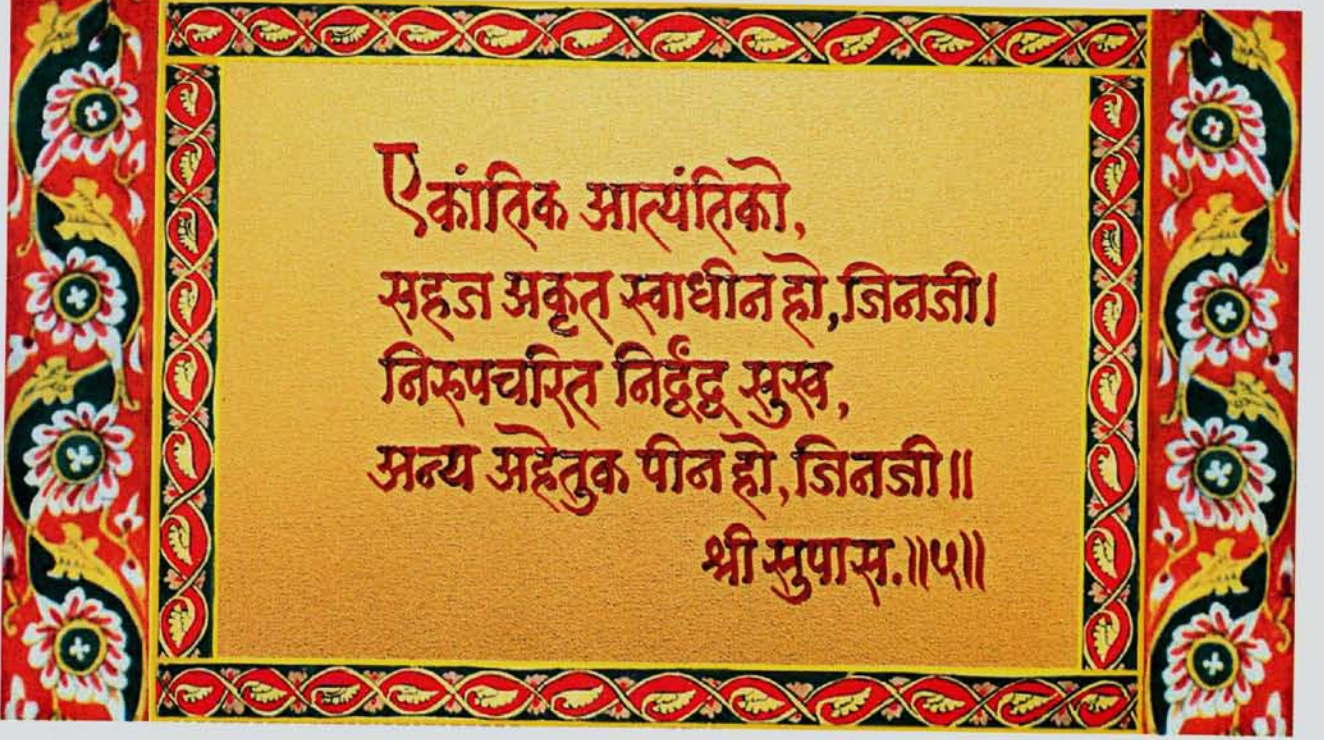 एकांतिक आत्यंतिको,
सहज अकृत स्वाधीन हो, जिनजी।
निरूपचरित निर्द्वंद्व सुख,
अन्य अहेतुक पीन हो, जिनजी॥
श्री सुपास.॥५॥